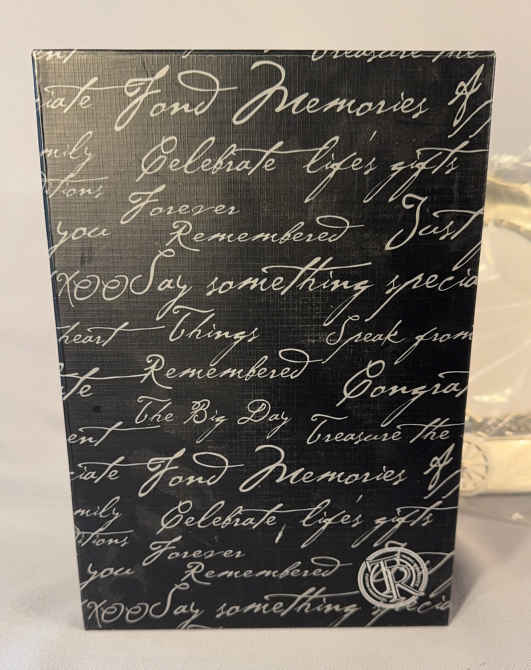 Treasure the
iate Fond Memories of
mily Celebrate life's gifts
itions
Forever
you Remembered Just
XOO Say something specia
heart Things Speak from
te Remembered Congrat
The Big Day
ent Treasure the
iate Fond Memories of
mily Celebrate life's gifts
itions Forever
you Remembered
XOO Say something specia